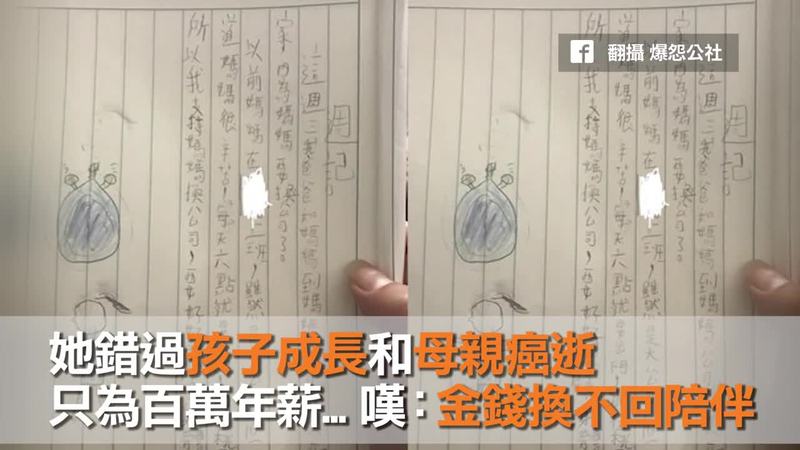 翻攝 爆怨公社
週記
這週三我爸爸和媽媽到媽媽
家,因為媽媽要換公司了。
以前媽媽在 上班,雖然
道媽媽很辛苦,每天六點就
所以我支持媽媽換公司,要好好
週記
這週三我爸爸和媽媽到媽媽公
家,因為媽媽要換公司了。
以前媽媽在 上班,雖然是大公
道媽媽很辛苦,每天六點就要出門
所以我支持媽媽換公司,要好好
她錯過孩子成長和母親癌逝
只為百萬年薪... 嘆：金錢換不回陪伴